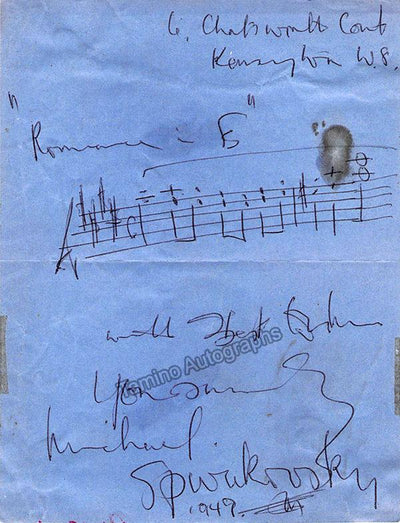 6, Chatsworth Court
Kensington W.8.
"Romance in E"
with best wishes
Yours sincerely
Michael
Spivakovsky
1949.
Tamino Autographs